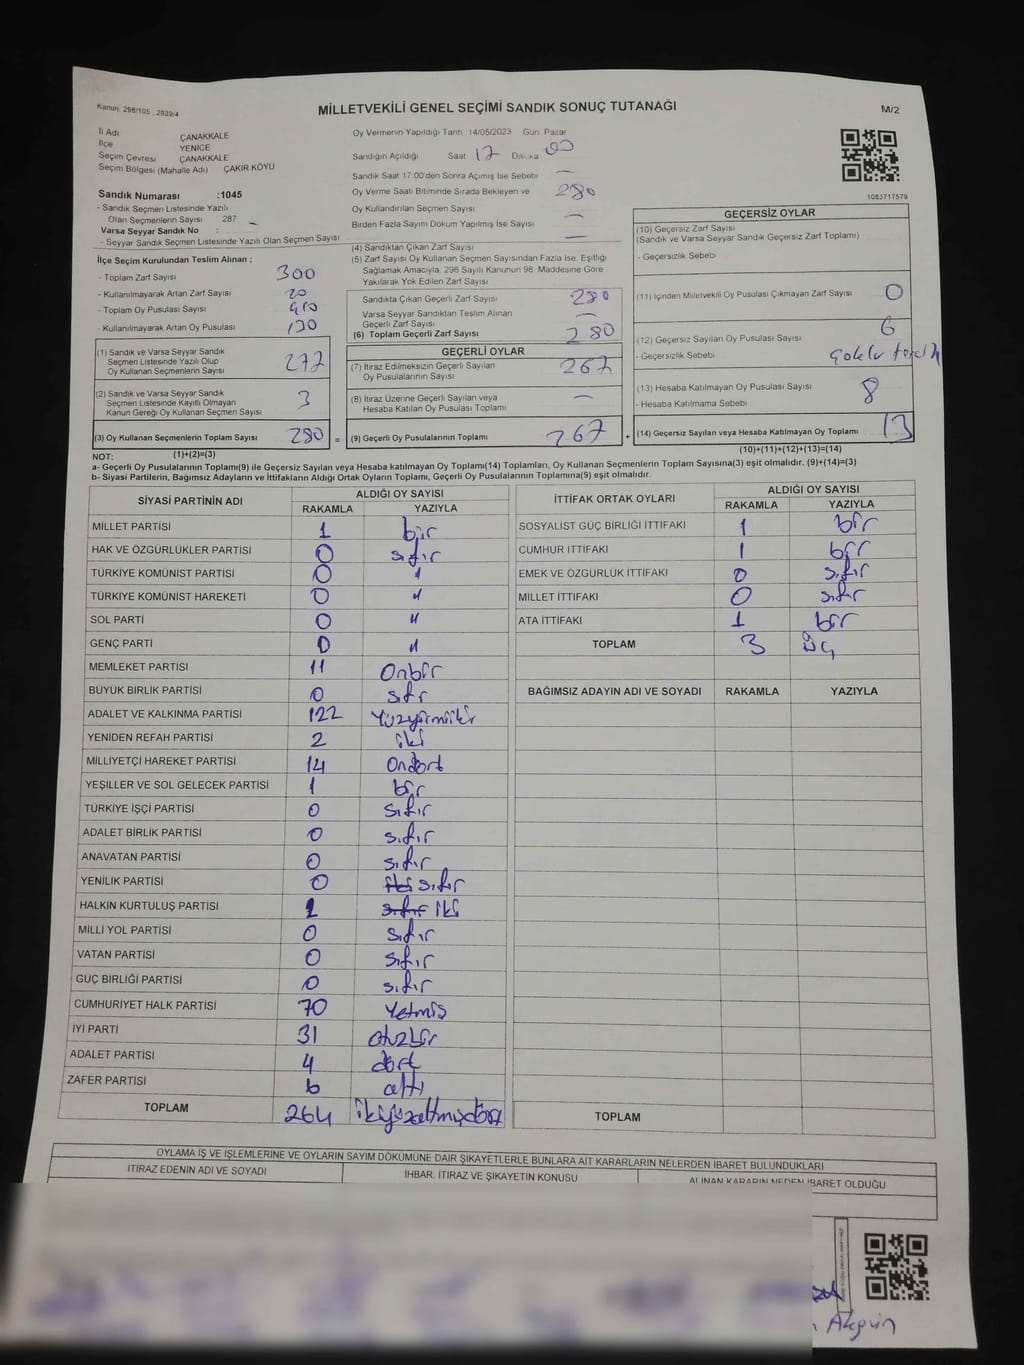 Kanun, 298/105 , 2839/4
MİLLETVEKİLİ GENEL SEÇİMİ SANDIK SONUÇ TUTANAĞI
M/2
İl Adı ÇANAKKALE
İlçe YENİCE
Seçim Çevresi ÇANAKKALE
Seçim Bölgesi (Mahalle Adı) ÇAKIR KÖYÜ
Sandık Numarası :1045
- Sandık Seçmen Listesinde Yazılı
Olan Seçmenlerin Sayısı 287
Varsa Seyyar Sandık No :
- Seyyar Sandık Seçmen Listesinde Yazılı Olan Seçmen Sayısı
İlçe Seçim Kurulundan Teslim Alınan ;
- Toplam Zarf Sayısı 300
- Kullanılmayarak Artan Zarf Sayısı 20
- Toplam Oy Pusulası Sayısı
- Kullanılmayarak Artan Oy Pusulası 130
(1) Sandık ve Varsa Seyyar Sandık
Seçmen Listesinde Yazılı Olup
Oy Kullanan Seçmenlerin Sayısı 277
(2) Sandık ve Varsa Seyyar Sandık
Seçmen Listesinde Kayıtlı Olmayan
Kanun Gereği Oy Kullanan Seçmen Sayısı 3
(3) Oy Kullanan Seçmenlerin Toplam Sayısı 280 =
Oy Vermenin Yapıldığı Tarih 14/05/2023 Gün Pazar
Sandığın Açıldığı Saat 17 Dakika 00
Sandık Saat 17.00'den Sonra Açımış İse Sebebi —
Oy Verme Saati Bitiminde Sırada Bekleyen ve 280
Oy Kullandırılan Seçmen Sayısı —
Birden Fazla Sayım Döküm Yapılmış İse Sayısı —
(4) Sandıktan Çıkan Zarf Sayısı
(5) Zarf Sayısı Oy Kullanan Seçmen Sayısından Fazla İse, Eşitliği
Sağlamak Amacıyla, 298 Sayılı Kanunun 98. Maddesine Göre
Yakılarak Yok Edilen Zarf Sayısı
Sandıkta Çıkan Geçerli Zarf Sayısı 280
Varsa Seyyar Sandıktan Teslim Alınan
Geçerli Zarf Sayısı —
(6) Toplam Geçerli Zarf Sayısı 280
GEÇERLİ OYLAR
(7) İtiraz Edilmeksizin Geçerli Sayılan
Oy Pusulalarının Sayısı 267
(8) İtiraz Üzerine Geçerli Sayılan veya
Hesaba Katılan Oy Pusulası Toplamı —
(9) Geçerli Oy Pusulalarının Toplamı 267 +
1083717579
GEÇERSİZ OYLAR
(10) Geçersiz Zarf Sayısı
(Sandık ve Varsa Seyyar Sandık Geçersiz Zarf Toplamı)
- Geçersizlik Sebebi
(11) İçinden Milletvekili Oy Pusulası Çıkmayan Zarf Sayısı 0
(12) Geçersiz Sayılan Oy Pusulası Sayısı 6
- Geçersizlik Sebebi
(13) Hesaba Katılmayan Oy Pusulası Sayısı 8
- Hesaba Katılmama Sebebi
(14) Geçersiz Sayılan veya Hesaba Katılmayan Oy Toplamı 13
(1)+(2)=(3)
(10)+(11)+(12)+(13)=(14)
NOT:
a- Geçerli Oy Pusulalarının Toplamı(9) ile Geçersiz Sayılan veya Hesaba katılmayan Oy Toplamı(14) Toplamları, Oy Kullanan Seçmenlerin Toplam Sayısına(3) eşit olmalıdır. (9)+(14)=(3)
b- Siyasi Partilerin, Bağımsız Adayların ve İttifakların Aldığı Ortak Oyların Toplamı, Geçerli Oy Pusulalarının Toplamına(9) eşit olmalıdır.
SİYASİ PARTİNİN ADI ALDIĞI OY SAYISI
RAKAMLA YAZIYLA
MİLLET PARTİSİ 1 bir
HAK VE ÖZGÜRLÜKLER PARTİSİ 0 sıfır
TÜRKİYE KOMÜNİST PARTİSİ 0 "
TÜRKİYE KOMÜNİST HAREKETİ 0 "
SOL PARTİ 0 "
GENÇ PARTİ 0 "
MEMLEKET PARTİSİ 11 Onbir
BÜYÜK BİRLİK PARTİSİ 0 sıfır
ADALET VE KALKINMA PARTİSİ 122 Yüzyirmiiki
YENİDEN REFAH PARTİSİ 2 iki
MİLLİYETÇİ HAREKET PARTİSİ 14 Ondört
YEŞİLLER VE SOL GELECEK PARTİSİ 1 bir
TÜRKİYE İŞÇİ PARTİSİ 0 sıfır
ADALET BİRLİK PARTİSİ 0 sıfır
ANAVATAN PARTİSİ 0 sıfır
YENİLİK PARTİSİ 0 iki sıfır
HALKIN KURTULUŞ PARTİSİ 2 sıfır iki
MİLLİ YOL PARTİSİ 0 sıfır
VATAN PARTİSİ 0 sıfır
GÜÇ BİRLİĞİ PARTİSİ 0 sıfır
CUMHURİYET HALK PARTİSİ 70 Yetmiş
İYİ PARTİ 31 otuzbir
ADALET PARTİSİ 4 dört
ZAFER PARTİSİ 6 altı
TOPLAM 264 ikiyüzaltmışdört
İTTİFAK ORTAK OYLARI ALDIĞI OY SAYISI
RAKAMLA YAZIYLA
SOSYALİST GÜÇ BİRLİĞİ İTTİFAKI 1 bir
CUMHUR İTTİFAKI 1 bir
EMEK VE ÖZGÜRLÜK İTTİFAKI 0 sıfır
MİLLET İTTİFAKI 0 sıfır
ATA İTTİFAKI 1 bir
TOPLAM 3 üç
BAĞIMSIZ ADAYIN ADI VE SOYADI RAKAMLA YAZIYLA
TOPLAM
OYLAMA İŞ VE İŞLEMLERİNE VE OYLARIN SAYIM DÖKÜMÜNE DAİR ŞİKAYETLERLE BUNLARA AİT KARARLARIN NELERDEN İBARET BULUNDUKLARI
İTİRAZ EDENİN ADI VE SOYADI İHBAR, İTİRAZ VE ŞİKAYETİN KONUSU ALINAN KARARIN NEDEN İBARET OLDUĞU
Akgün